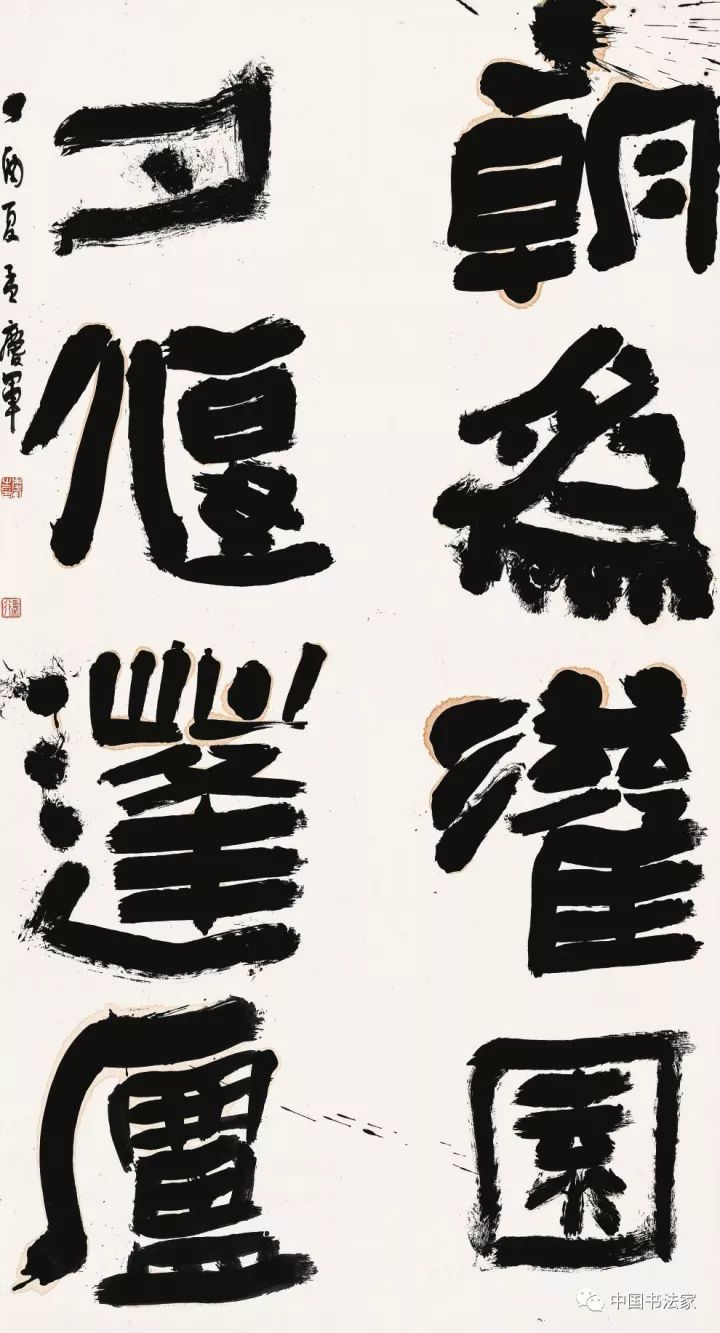 朝為灌園
夕偃蓬廬
丁酉夏孟慶軍
中国书法家